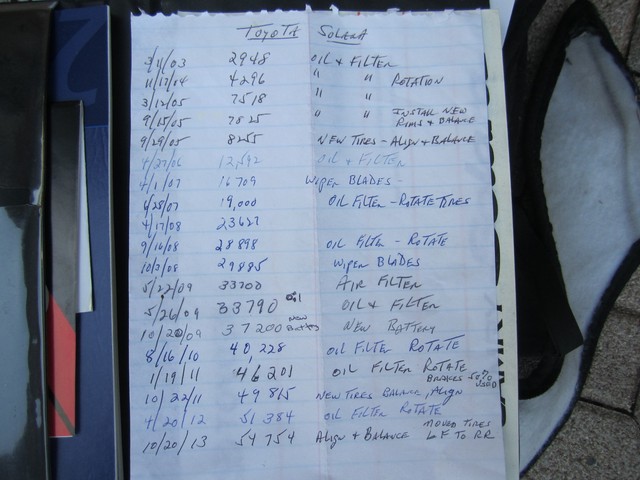 TOYOTA SOLARA
3/11/03 2948 OIL & FILTER
11/17/04 4296 " " ROTATION
3/12/05 7518 " "
9/15/05 7825 " " INSTALL NEW RIMS & BALANCE
9/29/05 8255 NEW TIRES - ALIGN & BALANCE
4/27/06 12,592 OIL & FILTER
4/1/07 16709 WIPER BLADES -
6/28/07 19,000 OIL FILTER - ROTATE TIRES
4/17/08 23627
9/16/08 28898 OIL FILTER - ROTATE
10/3/08 29885 WIPER BLADES
5/22/09 33700 AIR FILTER
5/26/09 33790 OIL OIL & FILTER
10/20/09 37200 NEW Battery NEW BATTERY
8/16/10 40,228 OIL FILTER ROTATE
1/19/11 46201 OIL FILTER ROTATE BRAKES 50% USED
10/22/11 49815 NEW TIRES BALANCE, ALIGN
4/20/12 51384 OIL FILTER ROTATE
10/20/13 54754 ALIGN & BALANCE MOVED TIRES LF TO RR